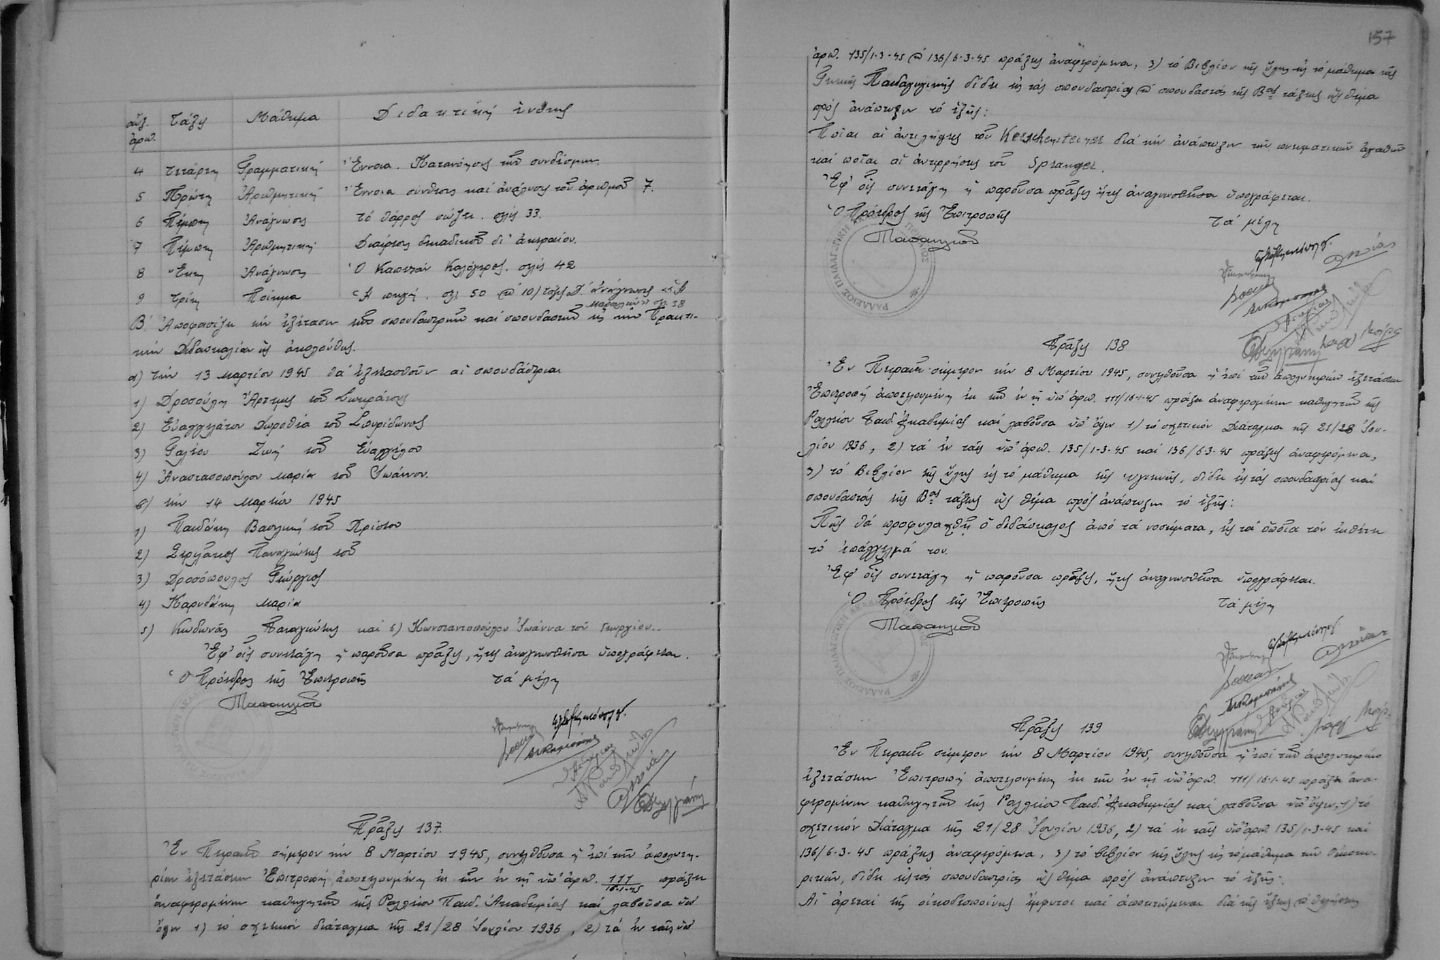 αὔξ. ἀρθ. Τάξις Μάθημα Διδακτική ἑνότης
4 Τετάρτη Γραμματική Ἔννοια. Κατανόησις τῶν συνδέσμων.
5 Πρώτη Ἀριθμητική Ἔννοια σύνθεσις καὶ ἀνάλυσις τοῦ ἀριθμοῦ 7.
6 Πέμπτη Ἀνάγνωσις Τὸ θάρρος σώζει. σελὶς 33.
7 Πέμπτη Ἀριθμητική Διαίρεσις δεκαδικοῦ δι' ἀκεραίου.
8 Ἕκτη Ἀνάγνωσις Ὁ Καπετὰν Καλόγερος. σελὶς 42
9 Τρίτη Ποίημα
Β' Ἀποφασίζει τὴν ἐξέτασιν τῶν σπουδαστριῶν καὶ σπουδαστῶν εἰς τὴν Πρακτι-
κὴν Διδασκαλίαν ὡς ἀκολούθως.
α) Τὴν 13 Μαρτίου 1945 θὰ ἐξετασθοῦν αἱ σπουδάστριαι
1) Δροσούλη Ἄρτεμις τοῦ Σωκράτους
2) Εὐαγγελάτου Δωροθέα τοῦ Σπυρίδωνος
3) Γαλίου Ζωή τοῦ Εὐαγγέλου
4) Ἀναστασοπούλου Μαρία τοῦ Ἰωάννου.
β) τὴν 14 Μαρτίου 1945
1) Παυδάκη Βασιλική τοῦ Χρίστου
2) Παναγιώτης τοῦ
3) Δροσόπουλος Γεώργιος
4) Καρυδάκη Μαρία
5) Κυδωνᾶς Παναγιώτης καὶ 6) Κωνσταντοπούλου Ἰωάννα τοῦ Γεωργίου.
Ἐφ' οἷς συνετάγη ἡ παροῦσα πρᾶξις, ἥτις ἀναγνωσθεῖσα ὑπογράφεται.
Ὁ Πρόεδρος τῆς Ἐπιτροπῆς Τὰ μέλη
Πρᾶξις 137.
Ἐν Πειραιεῖ σήμερον τὴν 8 Μαρτίου 1945, συνελθοῦσα ἡ ἐπὶ τῶν ἀπολυτη-
ρίων ἐξετάσεων Ἐπιτροπὴ ἀποτελουμένη ἐκ τῶν ἐν τῇ ὑπ' ἀριθ. 111/16-1-45 πράξει
ἀναφερομένων καθηγητῶν τῆς Ραλλείου Παιδ. Ἀκαδημίας καὶ λαβοῦσα ὑπ'
ὄψιν 1) τὸ σχετικὸν διάταγμα τῆς 21/28 Ἰουλίου 1936, 2) τὰ ἐν ταῖς ὑπ'
157
ἀριθ. 135/1-3-45 @ 136/6-3-45 πράξεις ἀναφερόμενα, 3) τὸ Βιβλίον τῆς ὕλης εἰς τὸ μάθημα τῆς
Γενικῆς Παιδαγωγικῆς δίδει εἰς τὰς σπουδαστρίας @ σπουδαστὰς τῆς Βας τάξεως ὡς θέμα
πρὸς ἀνάπτυξιν τὸ ἑξῆς:
Ποῖαι αἱ ἀντιλήψεις τοῦ Kerschensteiner διὰ τὴν ἀνάπτυξιν τῶν πνευματικῶν ἀγαθῶν
καὶ ποῖαι αἱ ἀντιρρήσεις τοῦ Spranger.
Ἐφ' οἷς συνετάγη ἡ παροῦσα πρᾶξις ἥτις ἀναγνωσθεῖσα ὑπογράφεται.
Ὁ Πρόεδρος τῆς Ἐπιτροπῆς Τὰ μέλη
Πρᾶξις 138
Ἐν Πειραιεῖ σήμερον τὴν 8 Μαρτίου 1945, συνελθοῦσα ἡ ἐπὶ τῶν ἀπολυτηρίων ἐξετάσεων
Ἐπιτροπὴ ἀποτελουμένη ἐκ τῶν ἐν τῇ ὑπ' ἀριθ. 111/16-1-45 πράξει ἀναφερομένων καθηγητῶν τῆς
Ραλλείου Παιδ. Ἀκαδημίας καὶ λαβοῦσα ὑπ' ὄψιν 1) τὸ σχετικὸν Διάταγμα τῆς 21/28 Ἰου-
λίου 1936, 2) τὰ ἐν ταῖς ὑπ' ἀριθ. 135/1-3-45 καὶ 136/6-3-45 πράξεις ἀναφερόμενα,
3) τὸ Βιβλίον τῆς ὕλης εἰς τὸ μάθημα τῆς ὑγιεινῆς, δίδει εἰς τὰς σπουδαστρίας καὶ
σπουδαστὰς τῆς Βας τάξεως ὡς θέμα πρὸς ἀνάπτυξιν τὸ ἑξῆς:
Πῶς θὰ προφυλαχθῇ ὁ διδάσκαλος ἀπὸ τὰ νοσήματα, εἰς τὰ ὁποῖα τὸν ἐκθέτει
τὸ ἐπάγγελμά του.
Ἐφ' οἷς συνετάγη ἡ παροῦσα πρᾶξις, ἥτις ἀναγνωσθεῖσα ὑπογράφεται.
Ὁ Πρόεδρος τῆς Ἐπιτροπῆς Τὰ μέλη
Πρᾶξις 139
Ἐν Πειραιεῖ σήμερον τὴν 8 Μαρτίου 1945, συνελθοῦσα ἡ ἐπὶ τῶν ἀπολυτηρίων
ἐξετάσεων Ἐπιτροπὴ ἀποτελουμένη ἐκ τῶν ἐν τῇ ὑπ' ἀριθ. 111/16-1-45 πράξει ἀνα-
φερομένων καθηγητῶν τῆς Ραλλείου Παιδ. Ἀκαδημίας καὶ λαβοῦσα ὑπ' ὄψιν, 1) τὸ
σχετικὸν Διάταγμα τῆς 21/28 Ἰουλίου 1936, 2) τὰ ἐν ταῖς ὑπ' ἀριθ. 135/1-3-45 καὶ
136/6-3-45 πράξεις ἀναφερόμενα, 3) τὸ βιβλίον τῆς ὕλης εἰς τὸ μάθημα τῶν Οἰκοκυ-
ρικῶν, δίδει εἰς τὰς σπουδαστρίας ὡς θέμα πρὸς ἀνάπτυξιν τὸ ἑξῆς:
Αἱ ἀρεταὶ τῆς οἰκοδεσποίνης ἔμφυτοι καὶ ἀποκτώμεναι διὰ τῆς ἕξεως @ θελήσεως